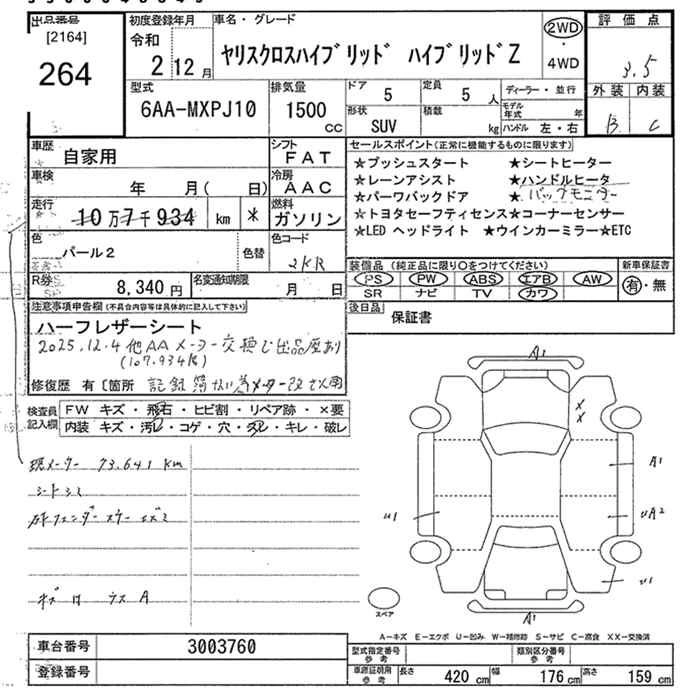 出品番号
[2164]
264
初度登録年月
令和
2 12月
車名・グレード
ヤリスクロスハイブリッド ハイブリッドZ
2WD
・
4WD
評価点
3.5
外装 内装
B C
型式
6AA-MXPJ10
排気量
1500
CC
ドア
5
定員
5 人
形状
SUV
積載
kg
ディーラー・並行
モデル年式 年
ハンドル 左・右
車歴
自家用
シフト
FAT
車検
年 月( 日)
冷房
AAC
走行
10万7千934 km *
燃料
ガソリン
色
パール2
色替
色コード
2KR
R券
8,340 円
名変通知期限
月 日
セールスポイント(正常に機能するものに限ります)
☆プッシュスタート ★シートヒーター
☆レーンアシスト ★ハンドルヒータ
☆パーワバックドア ★バックモニター
☆トヨタセーフティセンス★コーナーセンサー
☆LED ヘッドライト ★ウインカーミラー★ETC
装備品(純正品に限り○をつけてください)
PS PW ABS エアB AW
SR ナビ TV カワ
新車保証書
有・無
後日品
保証書
注意事項申告欄(不具合内容等は具体的に記入して下さい)
ハーフレザーシート
2025.12.4 他AAメーター交換し出品歴あり
(107.934k)
修復歴 有〔箇所 記録簿ない為メーター改ざん用
検査員記入欄
FW キズ・飛石・ヒビ割・リペア跡・×要
内装 キズ・汚レ・コゲ・穴・スレ・キレ・破レ
現メーター 73.641 km
シートシミ
A1
X
X
A1
U1
UA2
U1
A1
スペア
A−キズ E−エクボ U−凹み W−補修跡 S−サビ C−腐食 XX−交換済
車台番号
3003760
登録番号
型式指定番号
参考
類別区分番号
参考
車庫証明用
参考
長さ 420 cm
幅 176 cm
高さ 159 cm